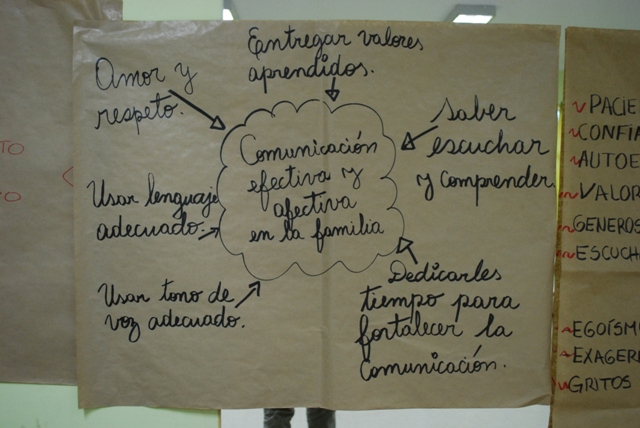 Entregar valores
aprendidos.
Amor y
respeto.
saber
escuchar
y comprender.
Comunicación
efectiva y
afectiva
en la familia
Usar lenguaje
adecuado.
Usar tono de
voz adecuado.
Dedicarles
tiempo para
fortalecer la
Comunicación.
PACIE
CONFIA
AUTOE
VALOR
GENEROS
ESCUCH
EGOÍSM
EXAGER
GRITOS
TO